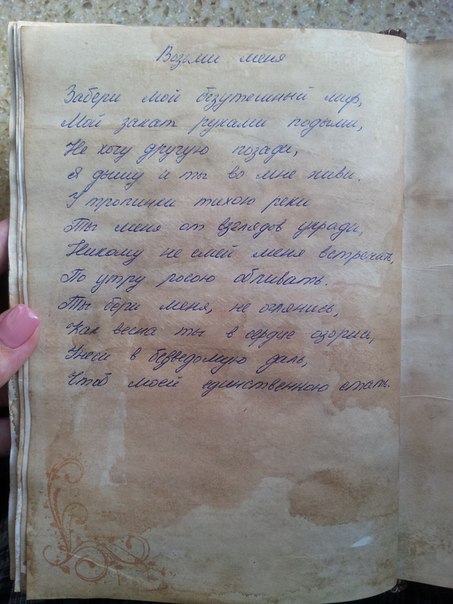 Возьми меня
Забери мой безутешный миф,
Мой закат руками подыми,
Не хочу другую позади,
Я дышу и ты во мне живи.
У тропинки тихою реки
Ты меня от взглядов укради,
Никому не смей меня встречать,
По утру росою обливать.
Ты бери меня, не оглянись,
Как весна ты в сердце озорись,
Унеси в безведомую даль,
Чтоб моей единственною стать.